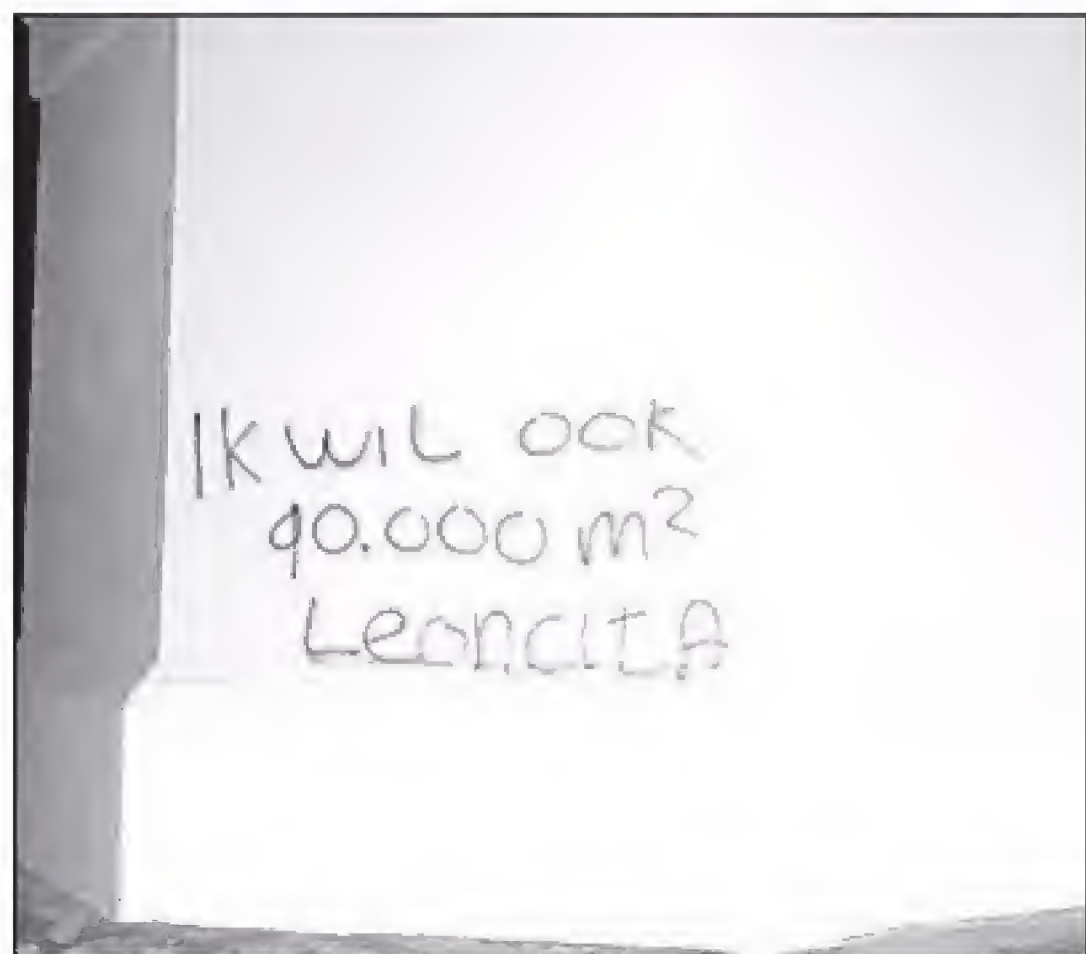 Ik wil ook
90.000 m²
Leoncita